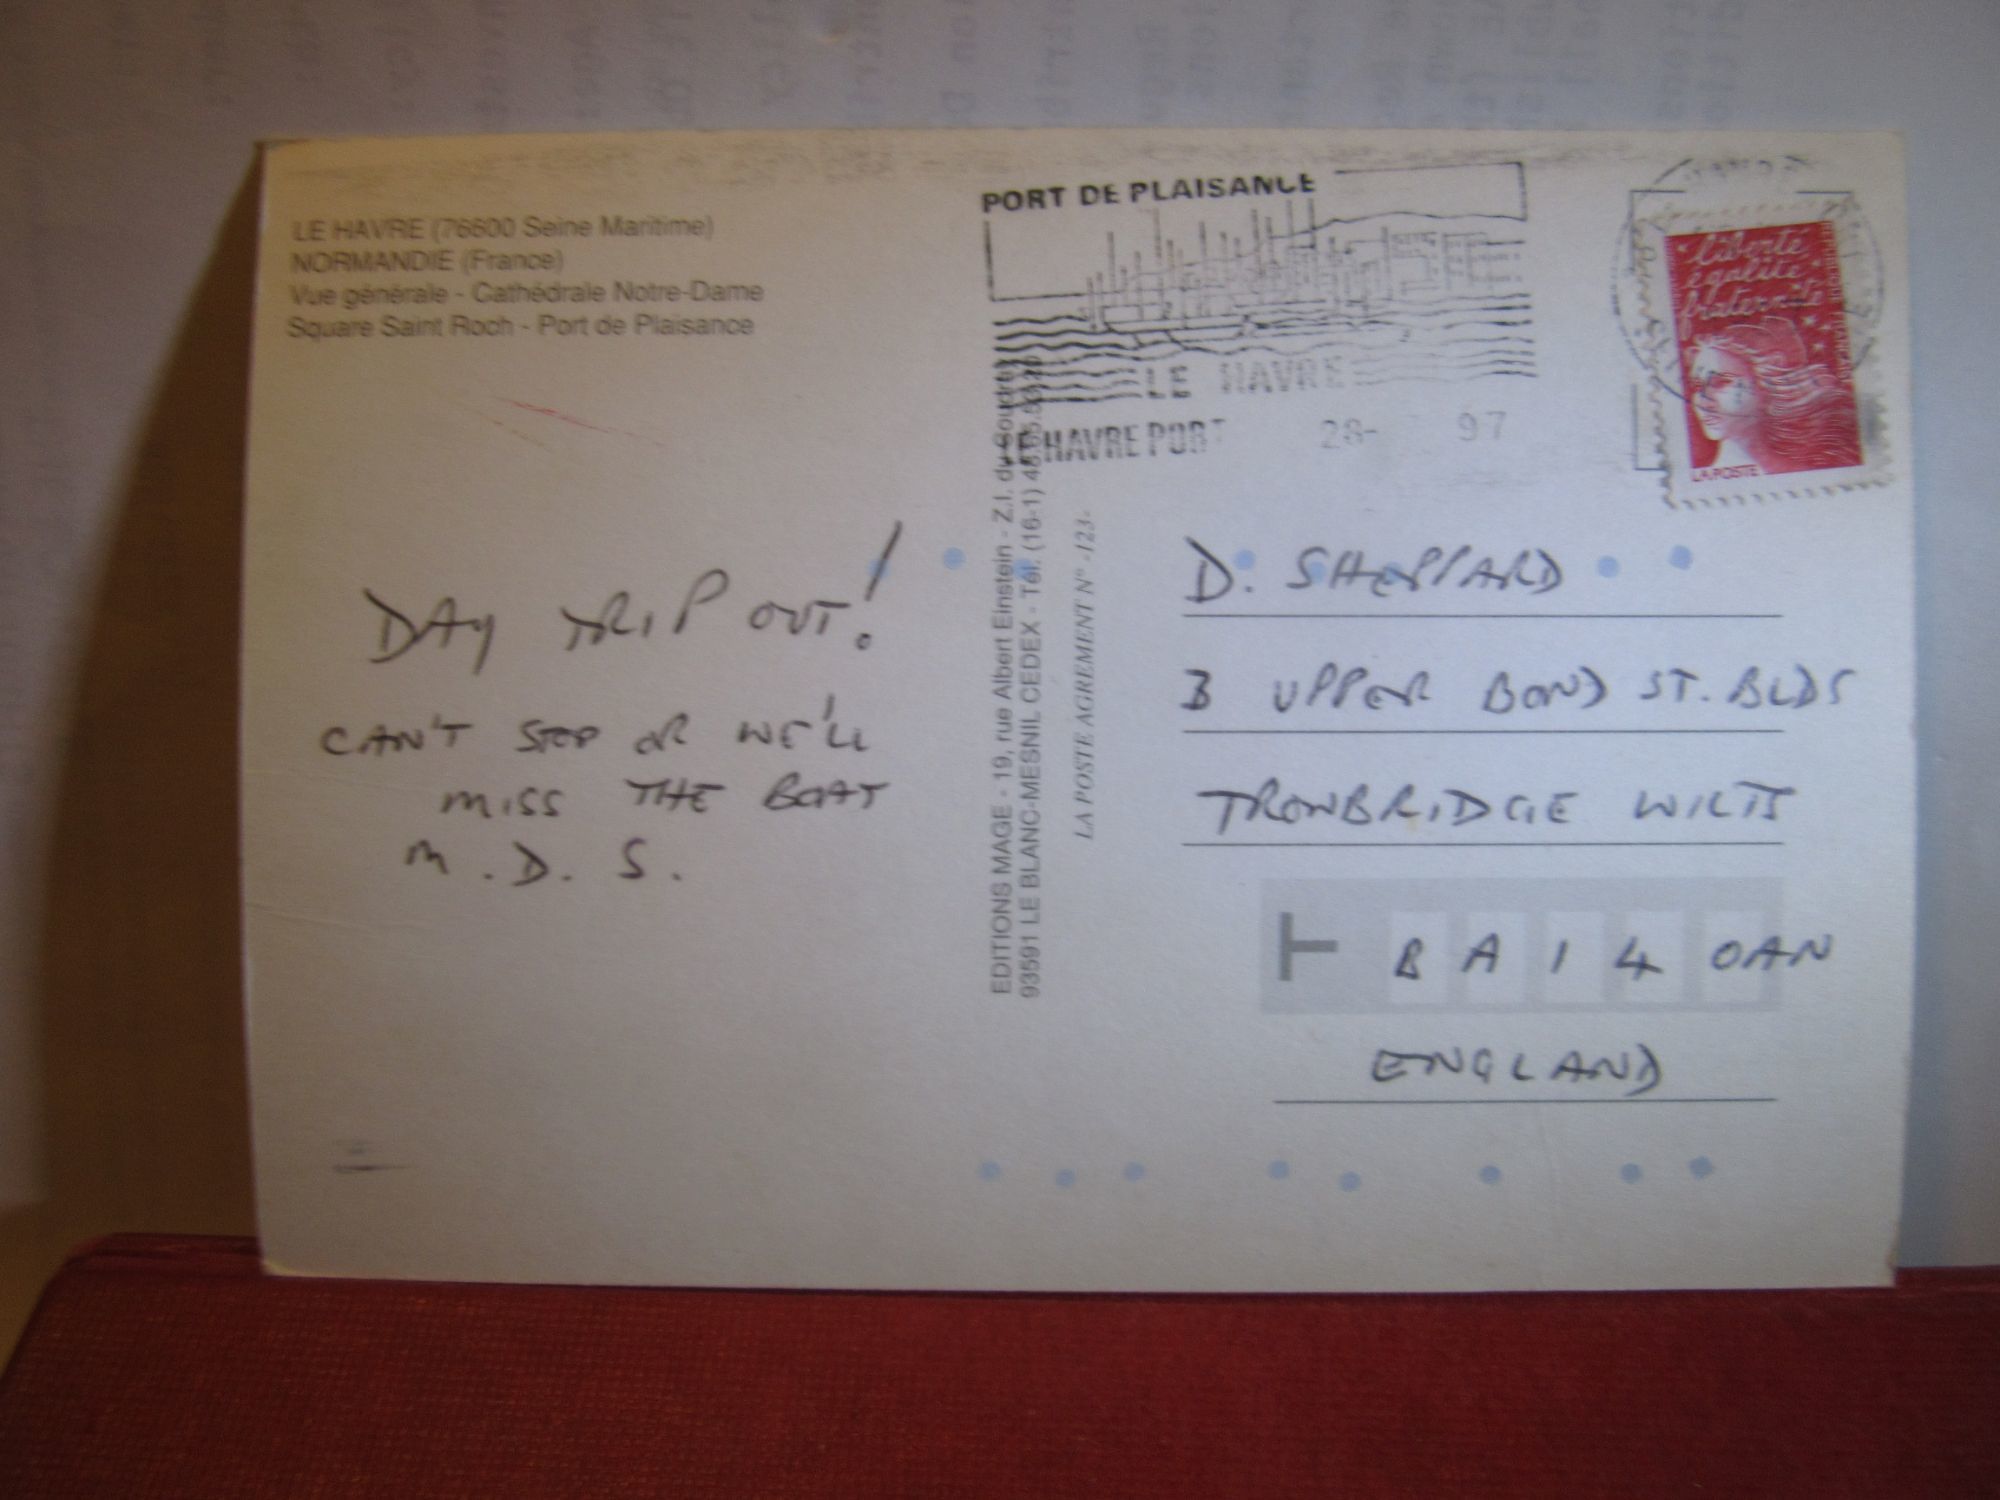 LE HAVRE (76600 Seine Maritime)
NORMANDIE (France)
Vue générale - Cathédrale Notre-Dame
Square Saint Roch - Port de Plaisance
DAY TRIP OUT!
CAN'T STOP OR WE'LL
MISS THE BOAT
M. D. S.
EDITIONS MAGE - 19, rue Albert Einstein - Z.I. du Coudray
93591 LE BLANC-MESNIL CEDEX - Tél. (16-1)
LA POSTE AGREMENT N° -123-
PORT DE PLAISANCE
LE HAVRE
LE HAVRE PORT 28- 97
liberté
égalité
fraternité
LA POSTE
D. SHEPPARD
3 UPPER BOND ST. BLDS
TROWBRIDGE WILTS
T BA14 0AN
ENGLAND